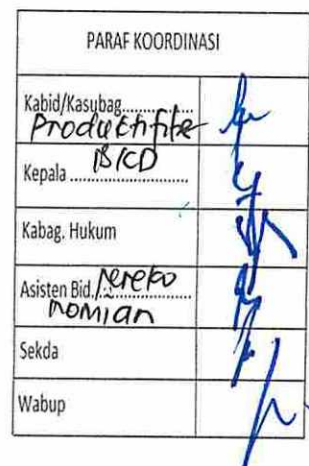 PARAF KOORDINASI
Kabid/Kasubag................
Produktifitas
Kepala BKD
Kabag. Hukum
Asisten Bid. Pereko
nomian
Sekda
Wabup